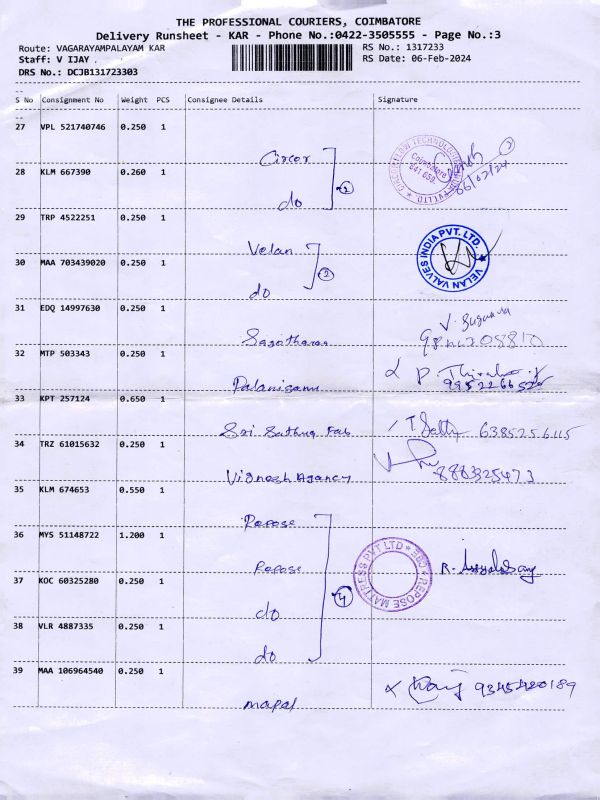 THE PROFESSIONAL COURIERS, COIMBATORE
Delivery Runsheet - KAR - Phone No.:0422-3505555 - Page No.:3
Route: VAGARAYAMPALAYAM KAR RS No.: 1317233
Staff: V IJAY . RS Date: 06-Feb-2024
DRS No.: DCJB131723303
S No Consignment No Weight PCS Consignee Details Signature
27 VPL 521740746 0.250 1
Circor
28 KLM 667390 0.260 1
do
2
CIRCOR FLOW TECHNOLOGIES INDIA PVT LTD.
Coimbatore
641 658
06/02/24
29 TRP 4522251 0.250 1
Velan
30 MAA 703439020 0.250 1
do
2
VELAN VALVES INDIA PVT. LTD.
31 EDQ 14997630 0.250 1
V. Suganya
32 MTP 503343 0.250 1
Palanisamy
33 KPT 257124 0.650 1
Sri Sathya Fab 6385256115
34 TRZ 61015632 0.250 1
Vignesh Agancy 888325473
35 KLM 674653 0.550 1
Repose
36 MYS 51148722 1.200 1
Repose
37 KOC 60325280 0.250 1
do
38 VLR 4887335 0.250 1
do
4
REPOSE MATTRESS PVT LTD
39 MAA 106964540 0.250 1
mapal 9345420189